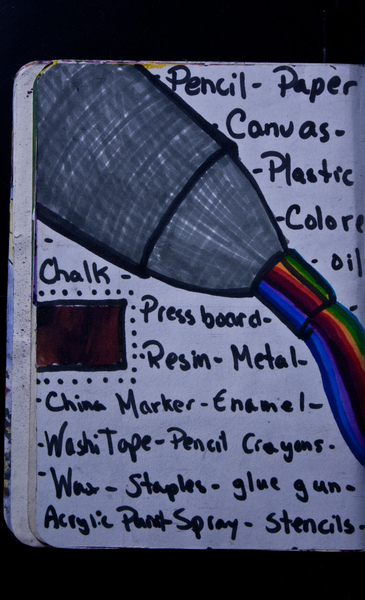 Pencil - Paper
Canvas -
- Plastic
- Colore
- oil
Chalk -
Pressboard -
Resin - Metal -
- China Marker - Enamel -
- Washi Tape - Pencil Crayons -
- Wax - Staples - glue gun -
Acrylic Paint Spray - Stencils -